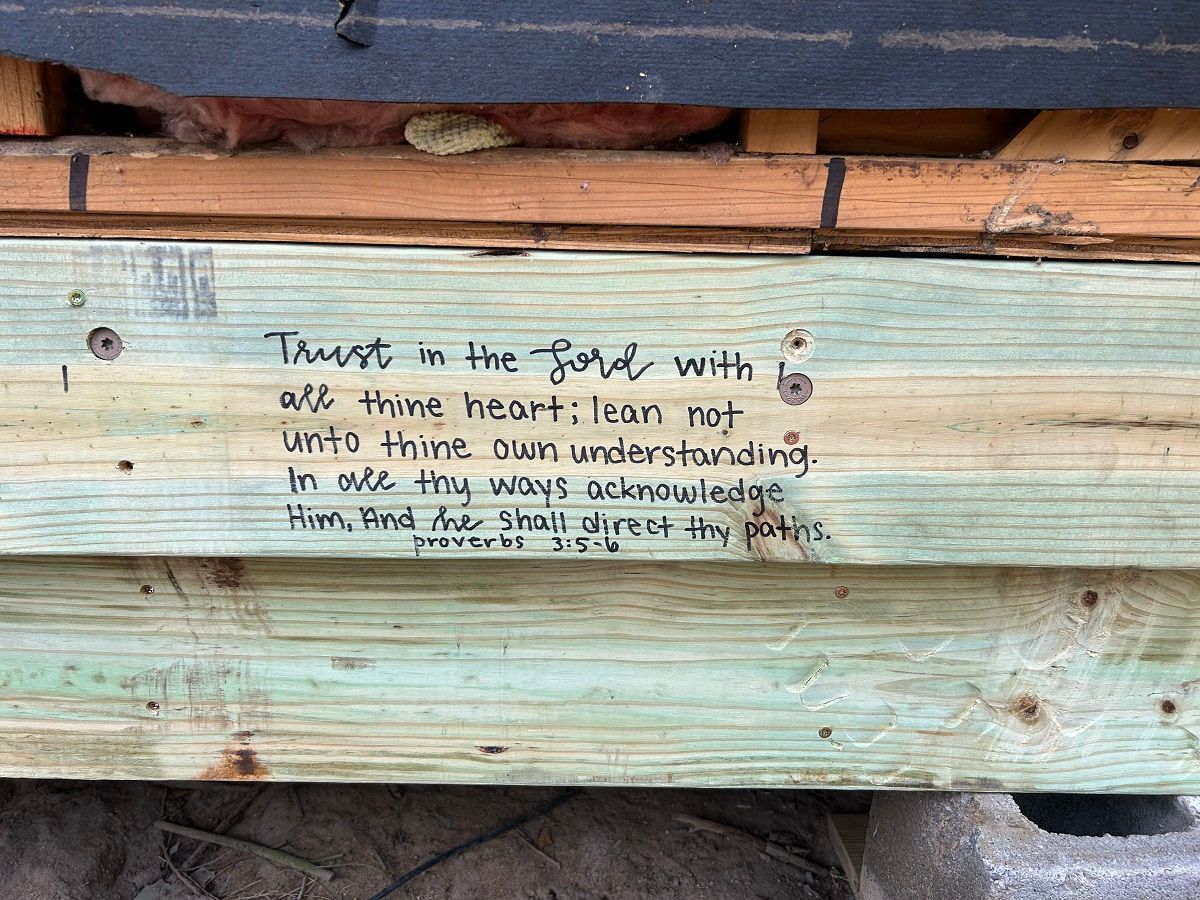 Trust in the Lord with
all thine heart; lean not
unto thine own understanding.
In all thy ways acknowledge
Him, And he shall direct thy paths.
proverbs 3:5-6